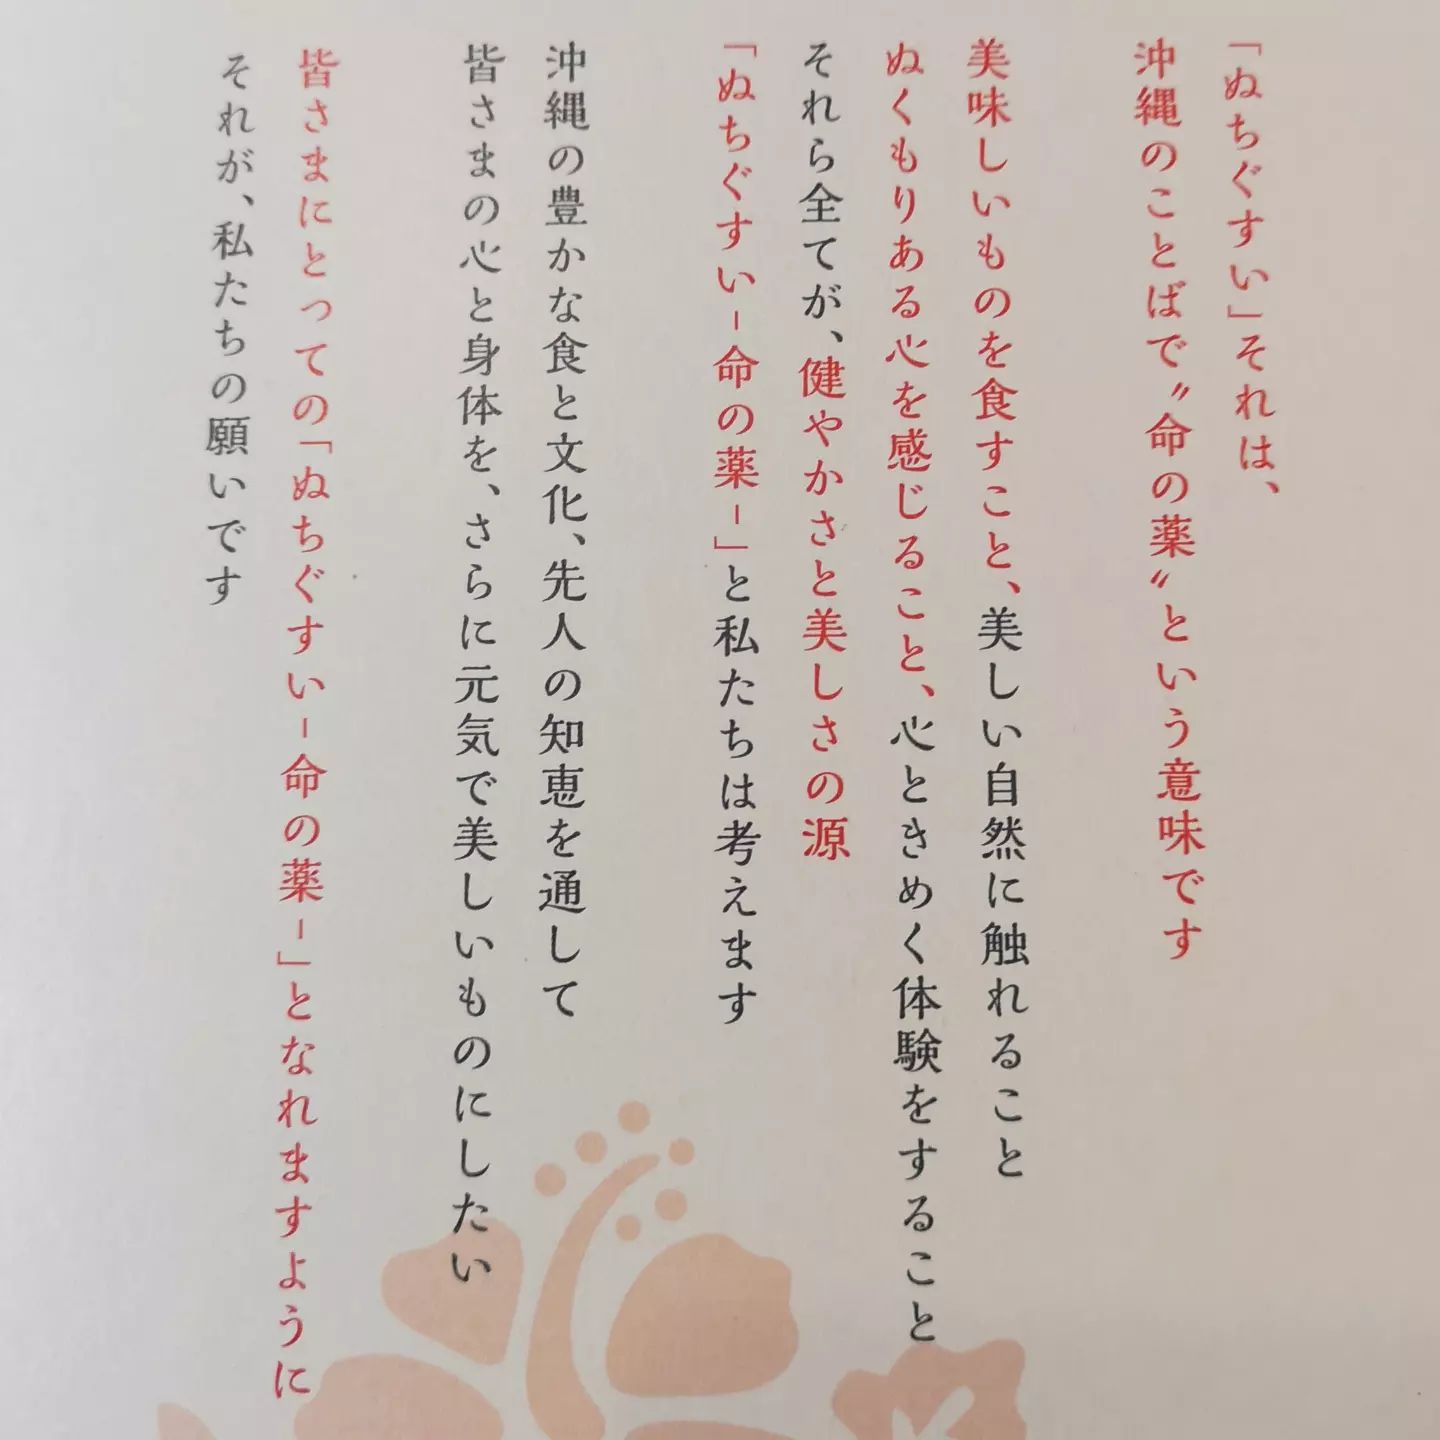 「ぬちぐすい」それは、
沖縄のことばで〝命の薬〟という意味です
美味しいものを食すこと、美しい自然に触れること
ぬくもりある心を感じること、心ときめく体験をすること
それら全てが、健やかさと美しさの源
「ぬちぐすい-命の薬-」と私たちは考えます
沖縄の豊かな食と文化、先人の知恵を通して
皆さまの心と身体を、さらに元気で美しいものにしたい
皆さまにとっての「ぬちぐすい-命の薬-」となれますように
それが、私たちの願いです